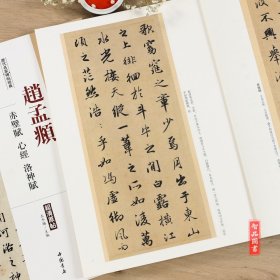 歌窈窕之章少焉月出于東山
之上徘徊於斗牛之間白露橫江
水光接天縱一葦之所如凌萬
頃之茫然浩〻乎如馮虛御風而
趙孟頫
赤壁賦 心經 洛神賦
不興
河洛之神